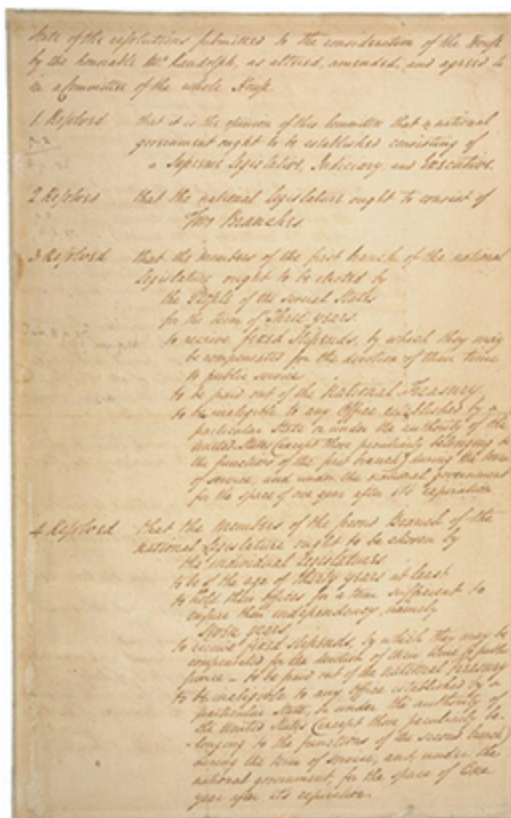 State of the resolutions submitted to the consideration of the House
by the honorable Mr Randolph, as altered, amended, and agreed to
in a Committee of the whole House.
1 Resolved that it is the opinion of this Committee that a national
government ought to be established consisting of
a Supreme Legislative, Judiciary, and Executive.
2 Resolved that the national Legislature ought to consist of
Two Branches
3 Resolved that the members of the first branch of the national
Legislature ought to be elected by
the People of the several States
for the term of Three years.
to receive fixed stipends, by which they may
be compensated for the devotion of their time
to public service
to be paid out of the National Treasury.
to be ineligible to any Office established by a
particular State or under the authority of the
United States (except those peculiarly belonging to
the functions of the first branch) during the term
of service, and under the national government
for the space of one year after its expiration
4 Resolved that the members of the second Branch of the
national Legislature ought to be chosen by
the individual Legislatures.
to be of the age of thirty years at least.
to hold their offices for a term sufficient to
ensure their independency, namely
seven years.
to receive fixed stipends, by which they may be
compensated for the devotion of their time to public
service - to be paid out of the National Treasury
to be ineligible to any Office established by a
particular State, or under the authority of
the United States (except those peculiarly be-
longing to the functions of the second branch)
during the term of service, and under the
national government, for the space of One
year after its expiration.